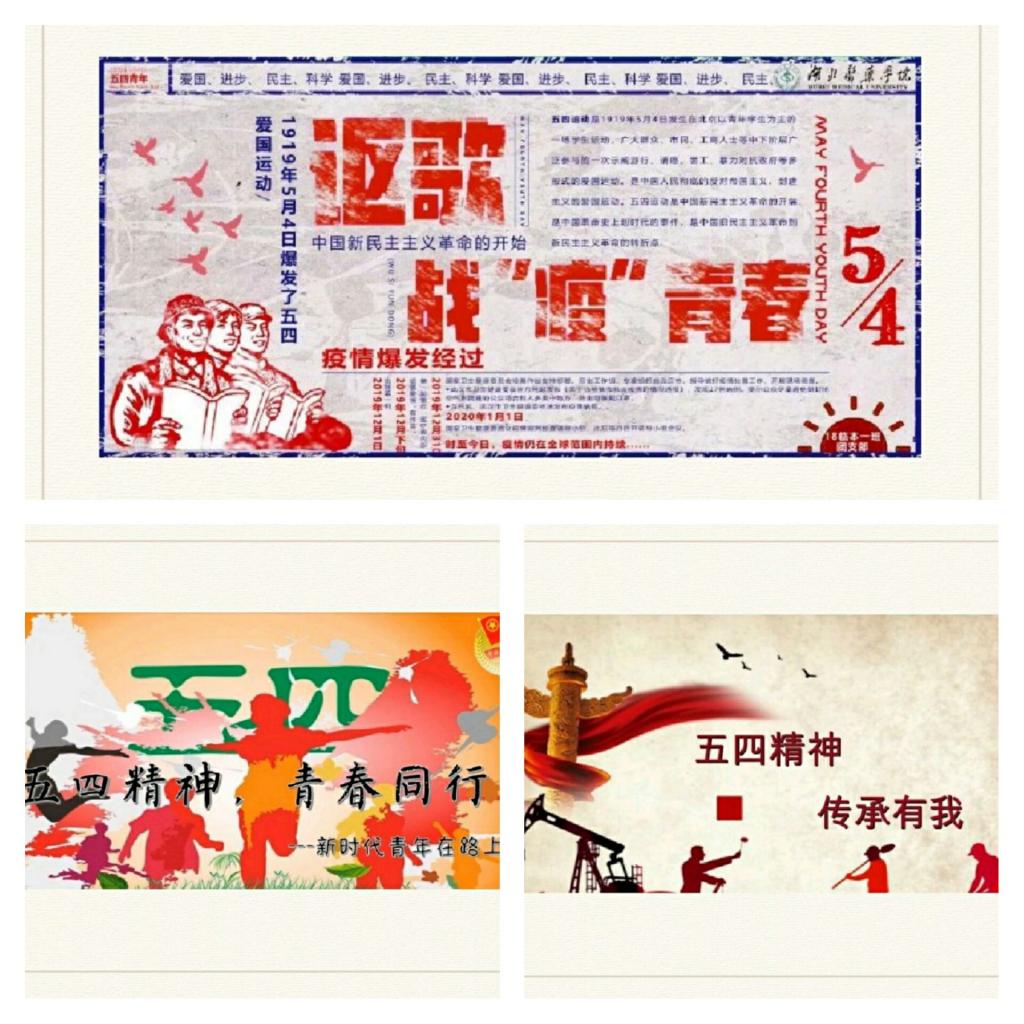 五四青年
爱国、进步、 民主、科学 爱国、进步、 民主、科学 爱国、进步、 民主、科学 爱国、进步、 民主、
湖北医药学院
HUBEI MEDICAL UNIVERSITY
1919年5月4日爆发了五四
爱国运动/
讴歌
MAY FOURTH YOUTH DAY
中国新民主主义革命的开始
五四运动是1919年5月4日发生在北京以青年学生为主的
一场学生运动,广大群众、市民、工商人士等中下阶层广
泛参与的一次示威游行、请愿、罢工、暴力对抗政府等多
形式的爱国运动。是中国人民彻底的反对帝国主义、封建
主义的爱国运动。五四运动是中国新民主主义革命的开端,
是中国革命史上划时代的事件,是中国旧民主主义革命到
新民主主义革命的转折点。
MAY FOURTH YOUTH DAY
5/4
战“疫”青春
(WU SI YUN DONG)
疫情爆发经过
2019年12月1日
2019年12月下旬
2019年12月31日
2020年1月1日
时至今日,疫情仍在全球范围内持续......
18临本一班
团支部
五四
五四精神,青春同行
---新时代青年在路上
五四精神
传承有我